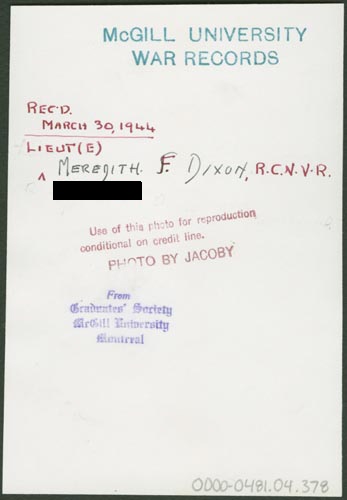 McGILL UNIVERSITY
WAR RECORDS
REC'D.
MARCH 30, 1944
LIEUT(E)
^ MEREDITH. F. DIXON, R.C.N.V.R.
Use of this photo for reproduction
conditional on credit line.
PHOTO BY JACOBY
From
Graduates' Society
McGill University
Montreal
0000-0481.04.378